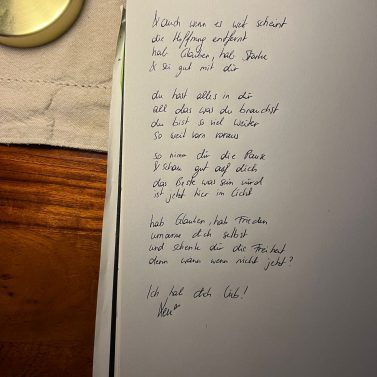 & auch wenn es weit scheint
die Hoffnung entfernt
hab Glauben, hab Stärke
& sei gut mit dir
du hast alles in dir
all das was du brauchst
du bist so viel weiter
so weit vorn voraus
so nimm dir die Pause
& schau gut auf dich
das Beste was sein wird
ist jetzt hier im Licht
hab Glauben, hab Frieden
umarme dich selbst
und schenke dir die Freiheit
denn wann wenn nicht jetzt?
Ich hab dich lieb!